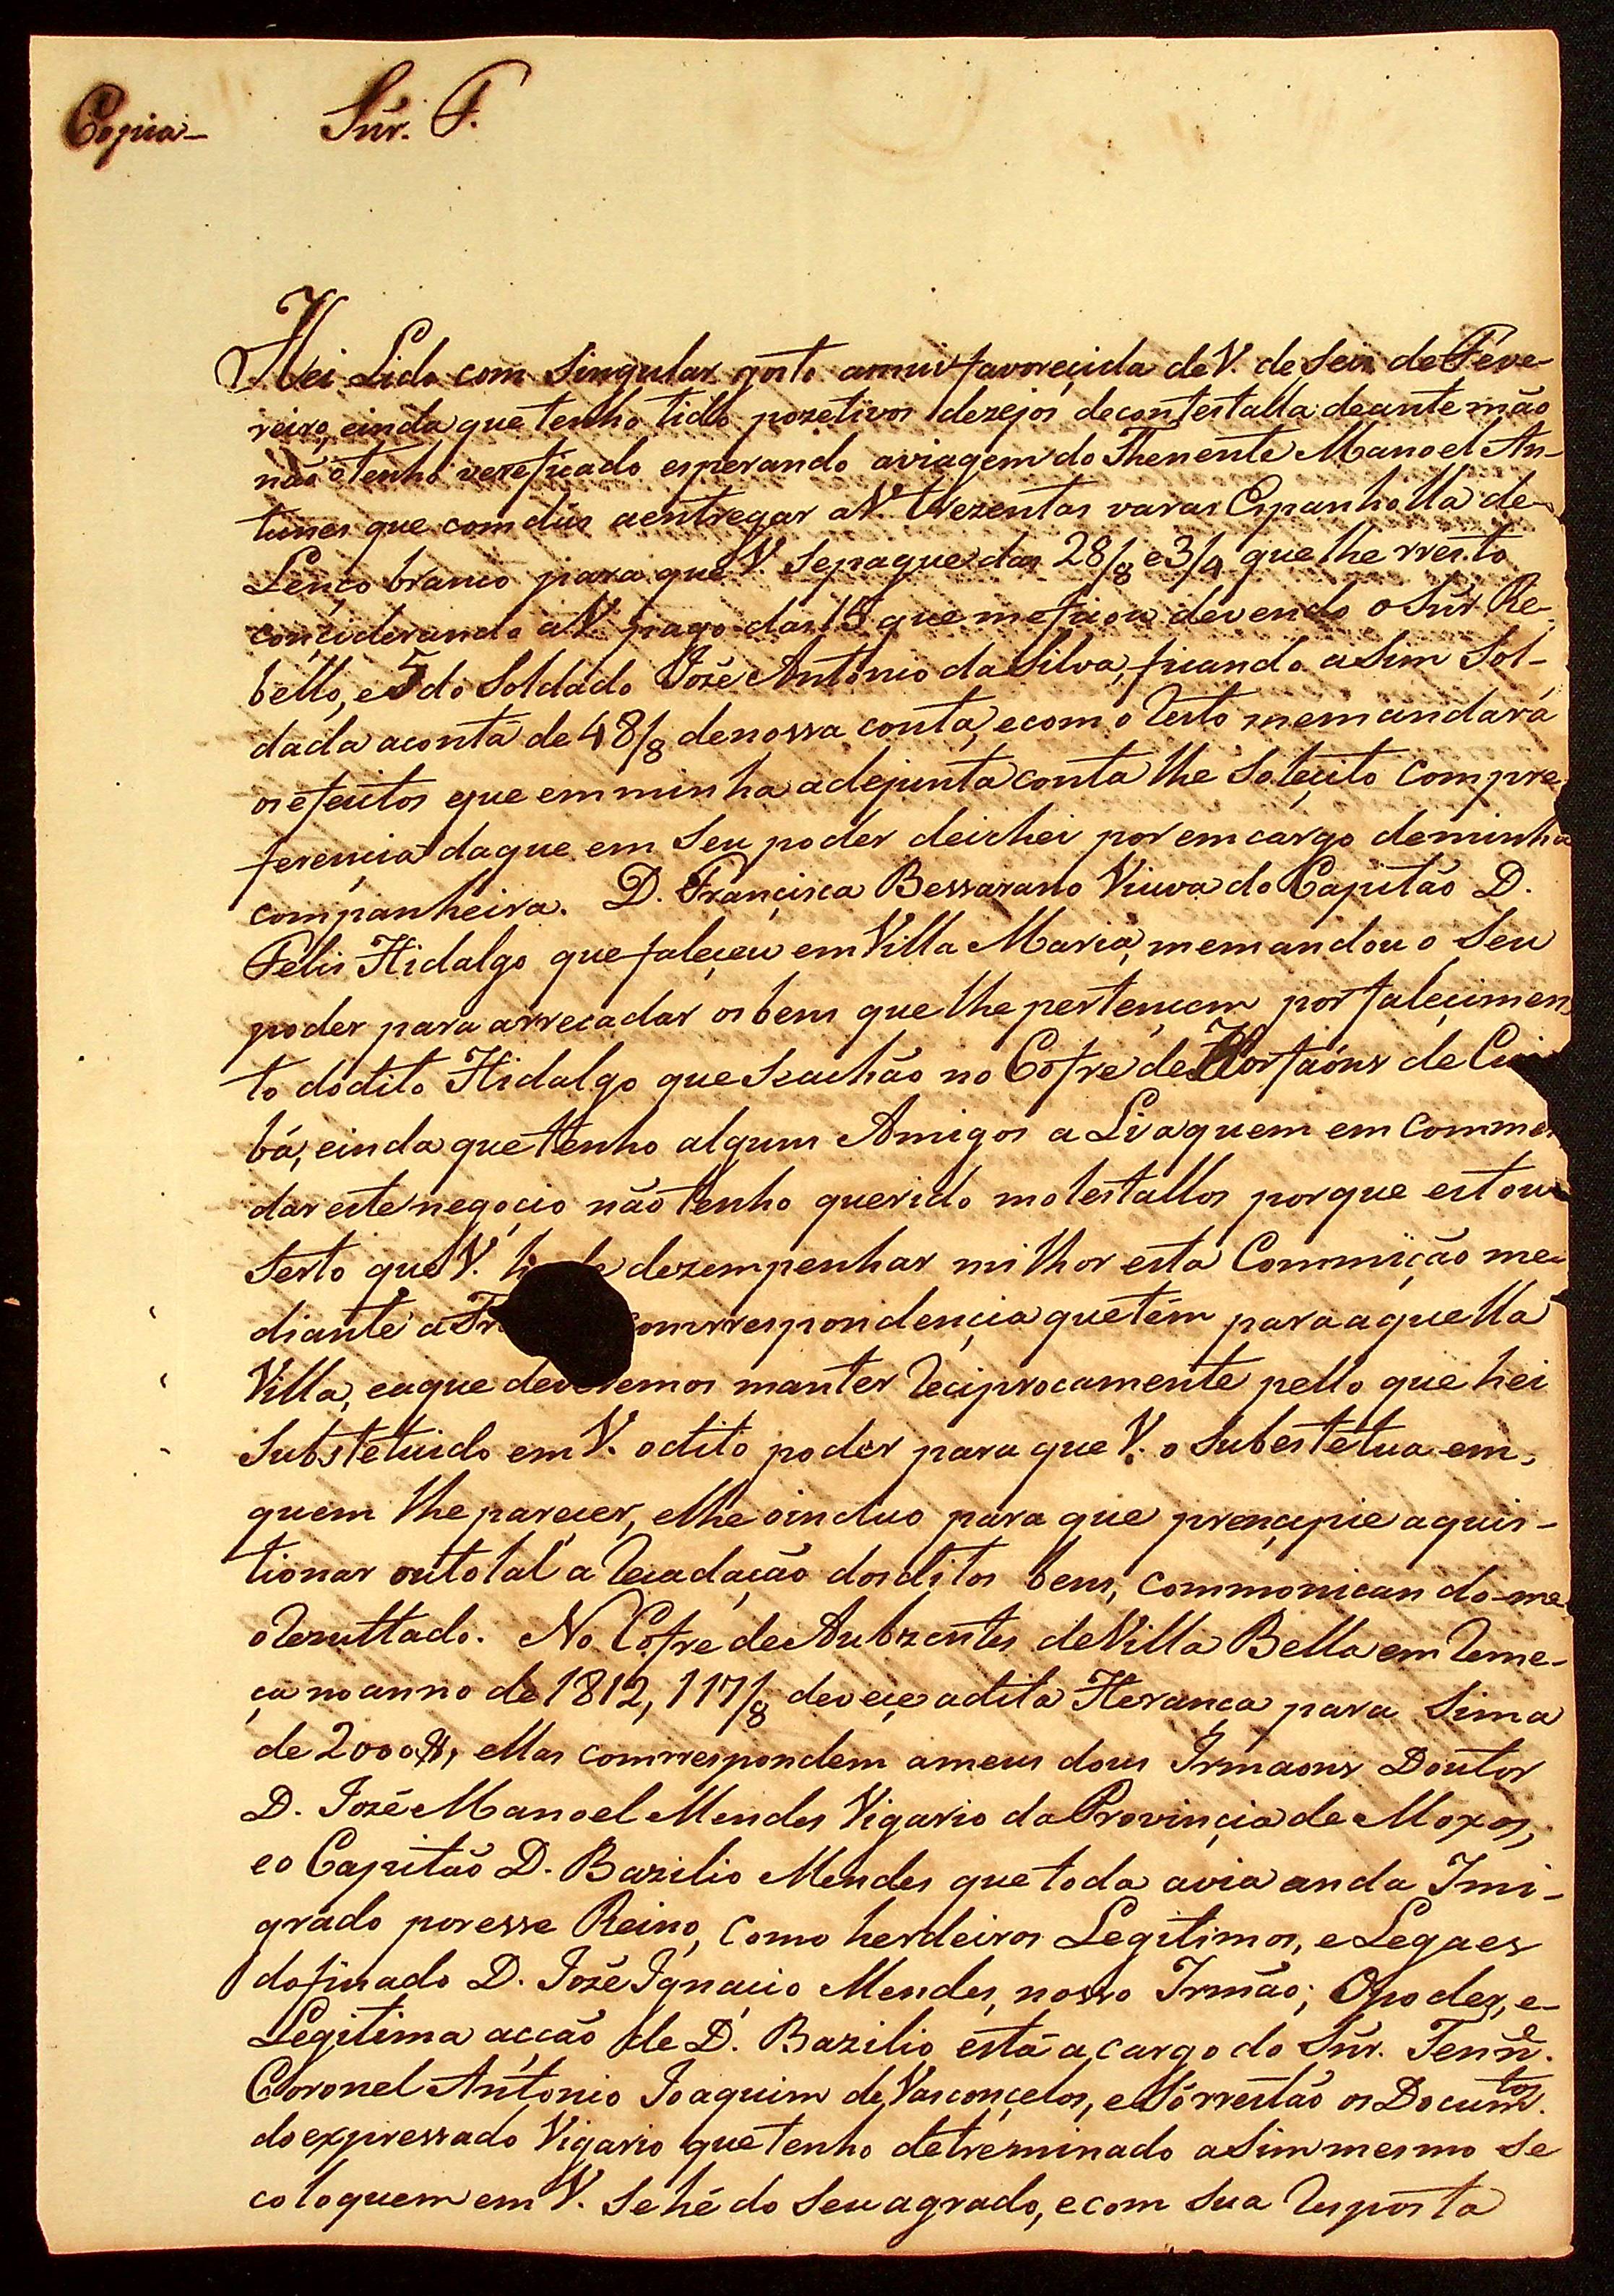 Copia- Sñr. F.
Hei Lido com Singular gosto amui favoreçida de V. de Seis de Feve-
reiro, einda que tenho tido pozetivos dezejos decontestalla deante mão
não o tenho verefiçado esperando aviagem do Thenente Manoel An-
tunes que comdús aentregar aV. trezentas varas Espanholla de
Lenço branco para que V. Sepague das 28/8 e 3/4 que lhe rresto
conçiderando aV. pago das 15 que meficou devendo o Sñr Re-
bello, e 5 do Soldado José Antonio da Silva, ficando aSim Sol-
dada aconta de 48/8 denossa conta, ecom o Resto memandará
os efeitos que em minha adejunta conta lhe Soleçito Com pre
ferençia daque em Seu poder deichei por emcargo deminha
companheira. D. Françisca Bessarano Viuva do Capitão D.
Felis Hidalgo que faleçeu em Villa Maria, memandou o Seu
poder para arrecadar os bems que lhe pertençem por faleçimen
to do dito Hidalgo que Seachão no Cofre de Horfaons de Cui
bá, einda que tenho algums Amigos a Li aquem em Commen
dar este negoçio não tenho querido molestallos porque estou
Serto que V. dezempenhar milhor esta Commição me-
diante a comrrespondençia que tem para aquella
Villa, eaque deveremos manter Reciprocamente pello que hei
Substetuido em V. odito poder para que V. o Subestetua em,
quem lhe pareçer, elhe oincluo para que prençipie aquis-
tionar outotal a Recadação dos ditos bems, commonican do-me
oRezultado. No Cofre de Aubzentes de Villa Bella em Reme-
ça no anno de 1812, 117/8 deveçe adita Herança para Sima
de 2000, ellas comrrespondem ameus dous Irmaons Doutor
D. José Manoel Mendes Vigario da Provinçia de Moxos,
e o Capitão D. Bazilio Mendes que toda avia anda Imi-
grado por esse Reino, Como herdeiros Legitimos, e Legaes
do finado D. José Ignaçio Mendes, nosso Irmão; O poder, e-
Legitima acção de D. Bazilio está a cargo do Sñr. Tenñe.
Coronel Antonio Joaquim de Vasconçelos, e Sórrestão os Documtos.
do expressado Vigario que tenho detreminado aSim mesmo Se
coloquem em V. Sehé do Seu agrado, ecom Sua Resposta